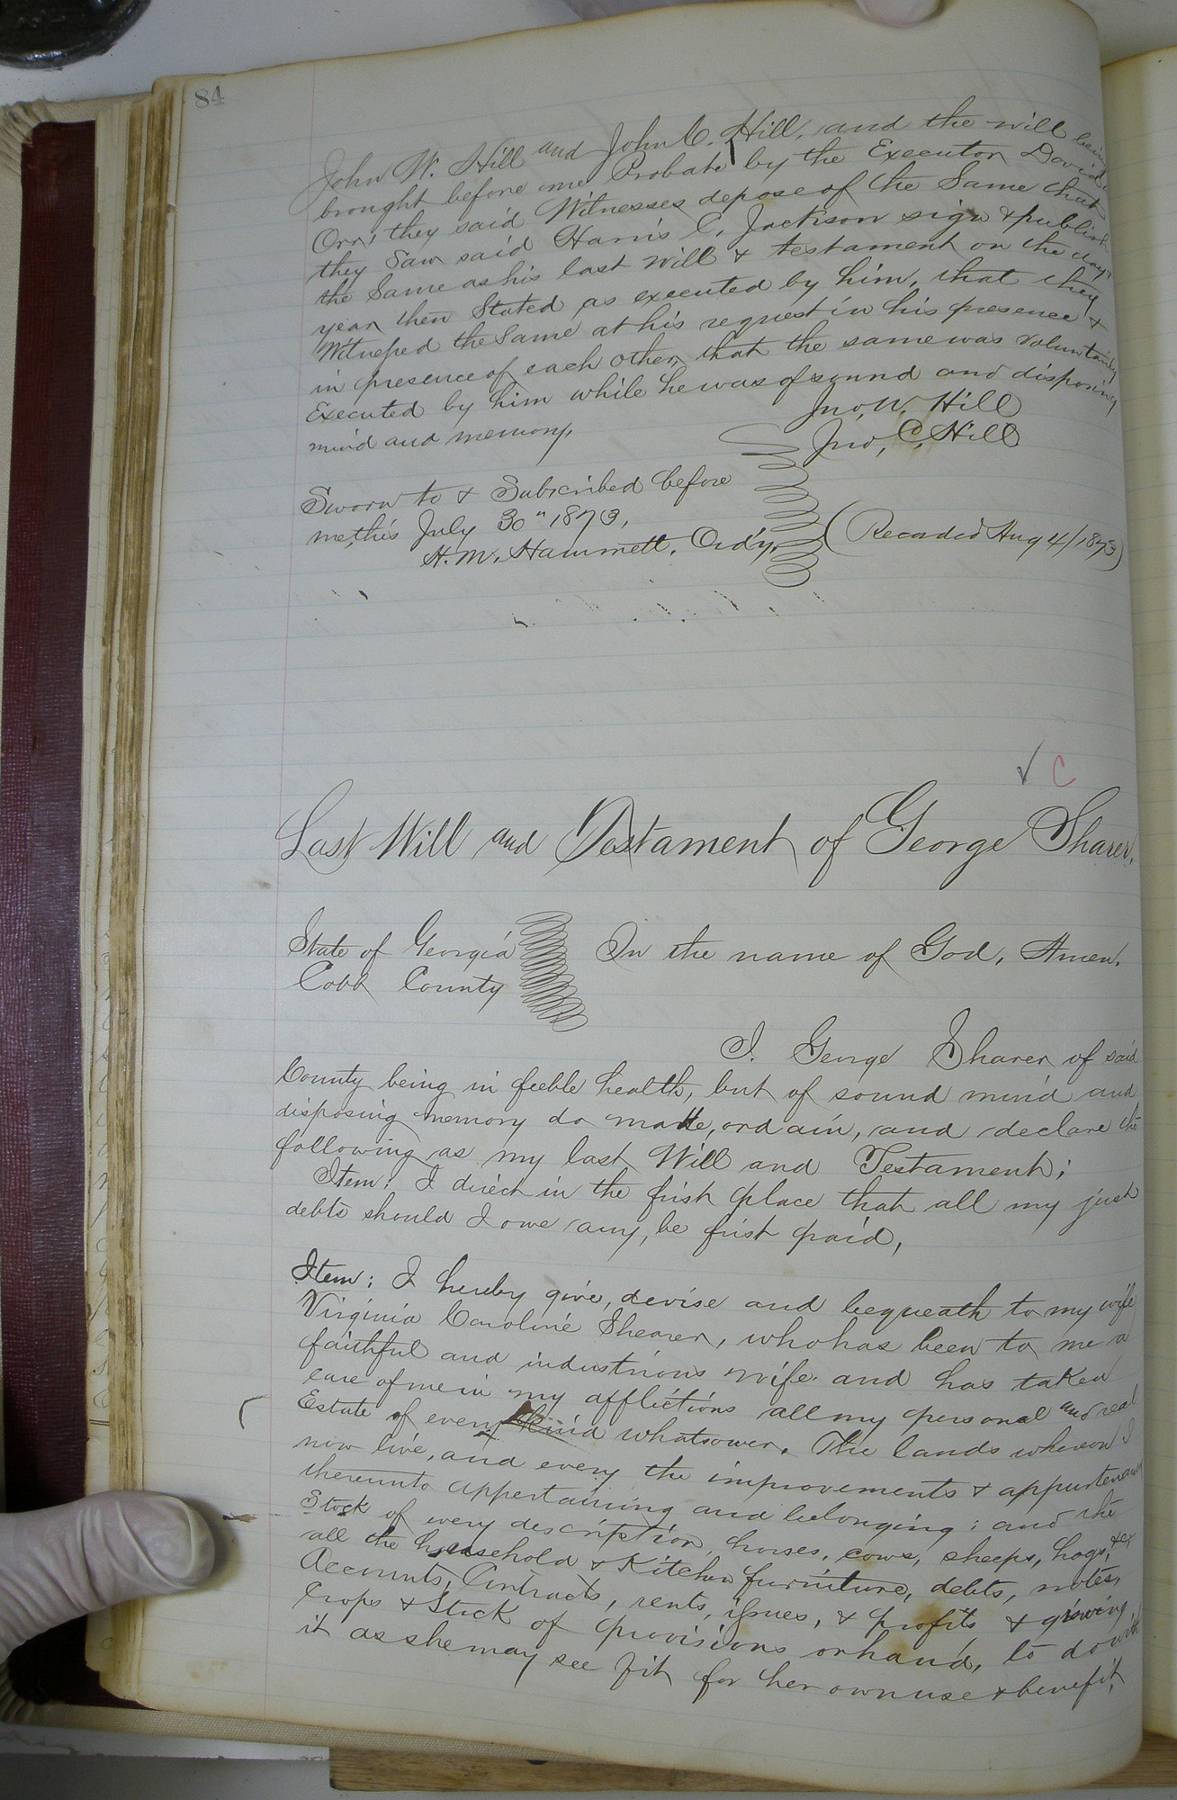 84
John W. Hill and John C. Hill, and the will being
brought before me Probate by the Executor David
Orr, they said Witnesses depose of the Same that
they Saw said Harris C. Jackson sign & publish
the Same as his last Will & testament on the day &
year then Stated as executed by him, that they
Witnessed the Same at his request in his presence &
in presence of each other, that the same was voluntarily
Executed by him while he was of sound and disposing
mind and memory,
Jno. W. Hill
Jno, C. Hill
Sworn to & Subscribed before
me, this July 30" 1873,
H. M. Hammett, Ord'y,
(Recorded Aug 4/1873)
C
Last Will and Testament of George Sharer,
State of Georgia
Cobb County
In the name of God, Amen,
I. George Sharer of said
County being in feeble health, but of sound mind and
disposing memory do make, ordain, and declare the
following as my last Will and Testament;
Item: I direct in the first place that all my just
debts should I owe any, be first paid,
Item: I hereby give, devise and bequeath to my wife
Virginia Caroline Shearer, who has been to me a
faithful and industrious wife and has taken
care of me in my afflictions all my personal and real
Estate of every kind whatsower. The lands whereon I
now live, and every the improvements & appurtenances
thereunto appertaining and belonging; and the
Stock of every description, horses, cows, sheeps, hogs, &c
all the household & Kitchen furniture, debts, notes,
Accounts, Contracts, rents, issues, & profits & growing
Crops & Stock of provisions on hand, to do with
it as she may see fit for her own use & benefit,